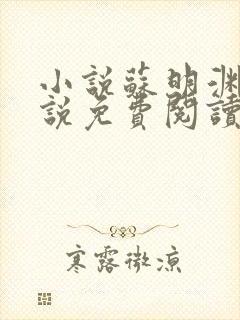 小說蘇明渊
說免費閱讀
寒露微凉